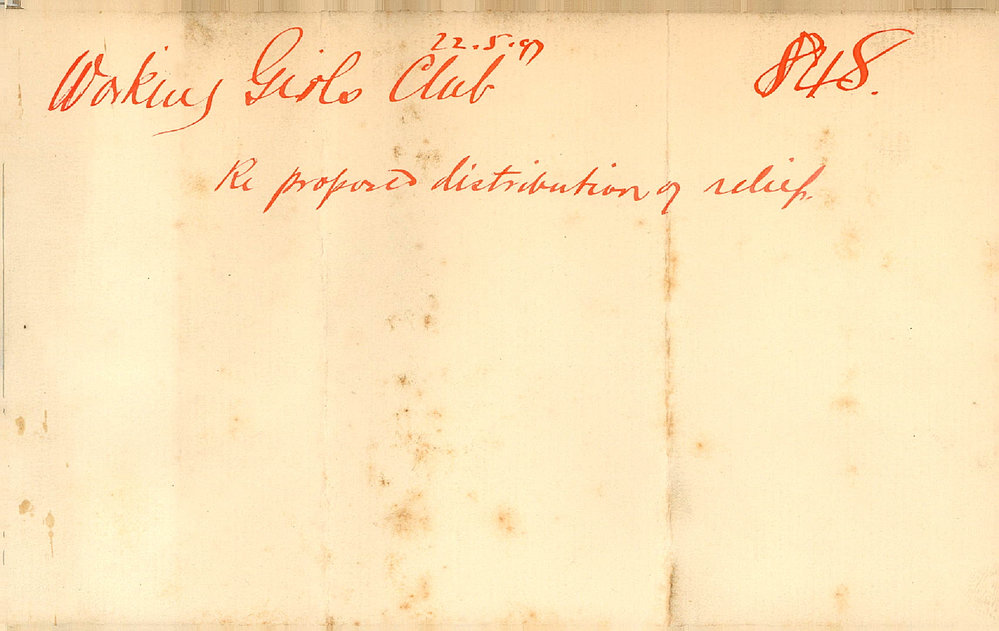 22.5.97
Working Girls Club 848.
Re proposed distribution of relief.